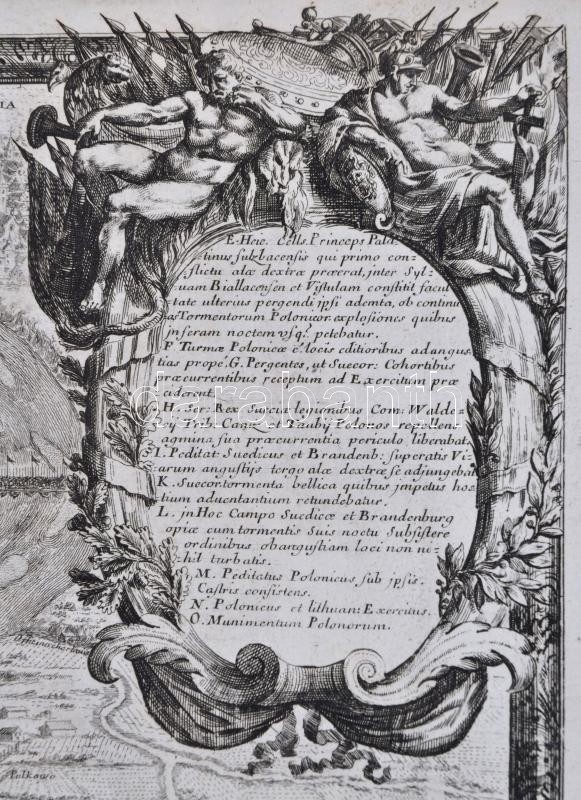 IA
E. Heic. Cells. Princeps Pala=
tinus sulzbacensis qui primo con=
flictu alæ dextræ præerat, jnter Syl=
vam Biallacensen et Vistulam constitit facul
tate ulterius pergendi jpsi ademta, ob continu
as Tormentorum Polonicor. explosiones quibus
jnseram noctem usq. petebatur.
F. Turmæ Polonicæ è locis editioribus ad angus
tias propè G. Pergentes, ut Suecor: Cohortibus
præcurrentibus receptum ad Exercitum præ
cederent.
H. Ser: Rex Sueciæ legionibus Com: Walde
cij, Trib. Canæ et Taubij Polonos repellens
agmina sua præcurrentia periculo liberabat.
I. Peditat: Suedicus et Brandenb: superatis Vi
arum angustijs tergo alæ dextræ se adjungebat
K. Suecor. tormenta bellica quibus jmpetus hos
tium aduentantium retundebatur.
L. jn Hoc Campo Suedicæ et Brandenburg
opiæ cum tormentis Suis noctu Subsistere
ordinibus ob angustiam loci non ni=
hil turbatis.
M. Peditatus Polonicus sub jpsis
Castris consistens.
N. Polonicus et lithuan: Exercitus.
O. Munimentum Polonorum.
Pulkowo
darabanth